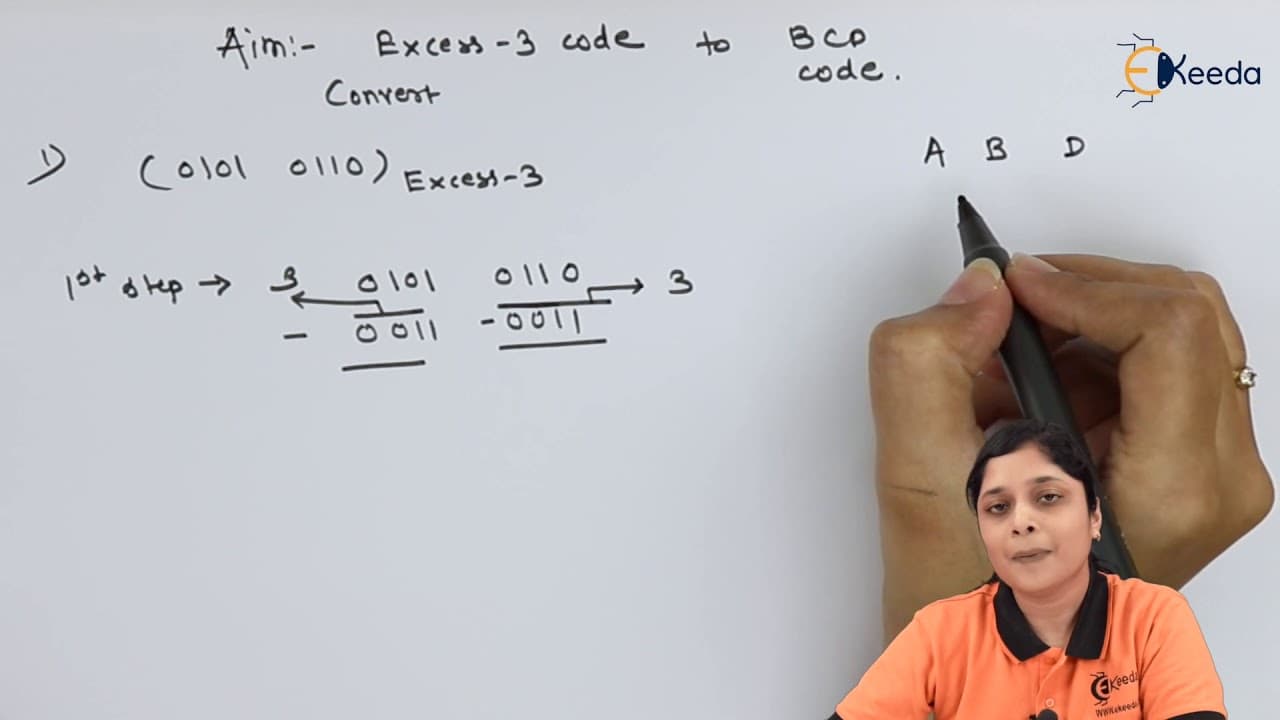 Aim:- Excess-3 code to BCD code.
Convert
EKeeda
1) (0101 0110) Excess-3
A B D
1st step → 3 0101 0110 → 3
- 0011 -0011
EKeeda